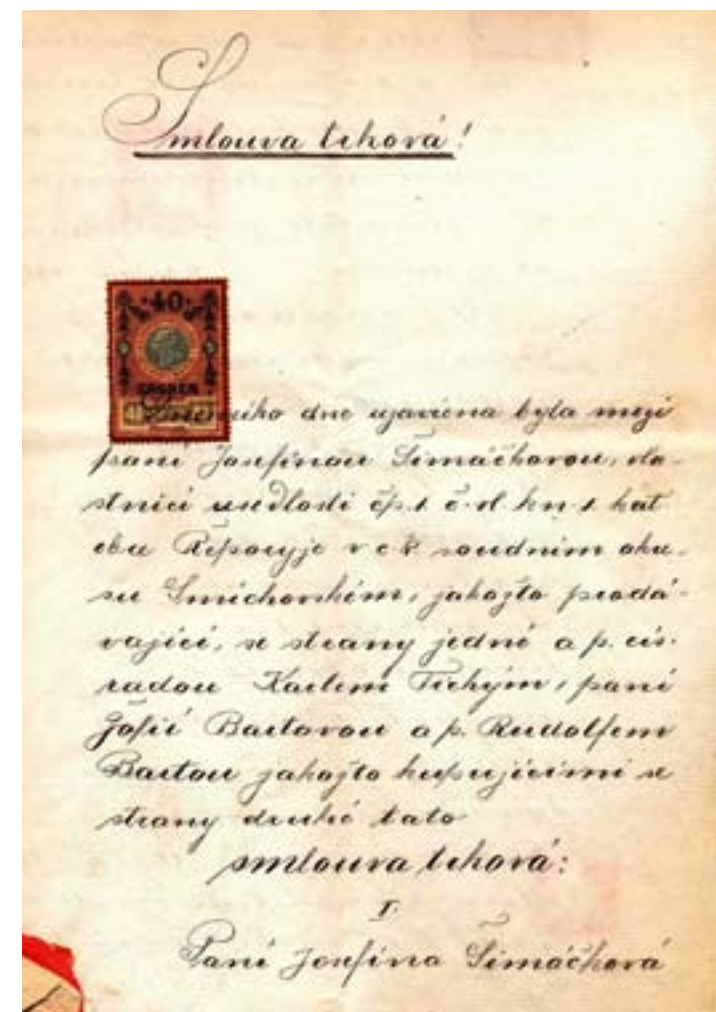 Smlouva trhová!
40
Dnešního dne ujavřena byla mezi
paní Josefinou Šimáčkovou, vla-
stnicí usedlosti čp. 1 č. vl. kn. 1 kat
obce Řeporyje v c. k. soudním okre-
su Smíchovském, jakožto prodá-
vající, se strany jedné a p. cís.
radou Karlem Tichým, paní
Žofií Bartovou a p. Rudolfem
Bartou jakožto kupujícími se
strany druhé tato
smlouva trhová:
I.
Paní Josefina Šimáčková